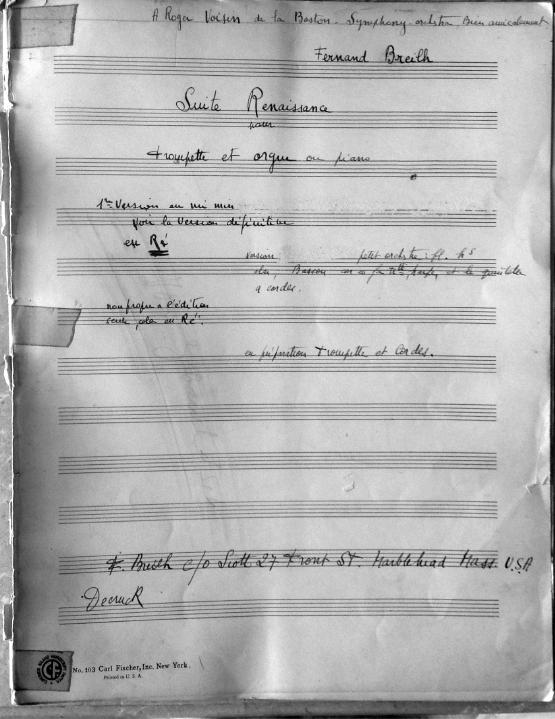 A Roger Voisin de la Boston-Symphony-orchestra Bien amicalement
Fernand Breilh
Suite Renaissance
pour
trompette et orgue ou piano
1re Version en mi
voir la version définitive
en Ré
version petit orchestre: fl. hb
Basson et le quintette
a cordes.
en préparation trompette et Cordes.
F. Breilh c/o Scott 27 Front St. Marblehead Mass. U.S.A
Decruck
No. 103 Carl Fischer, Inc. New York.
Printed in U. S. A.